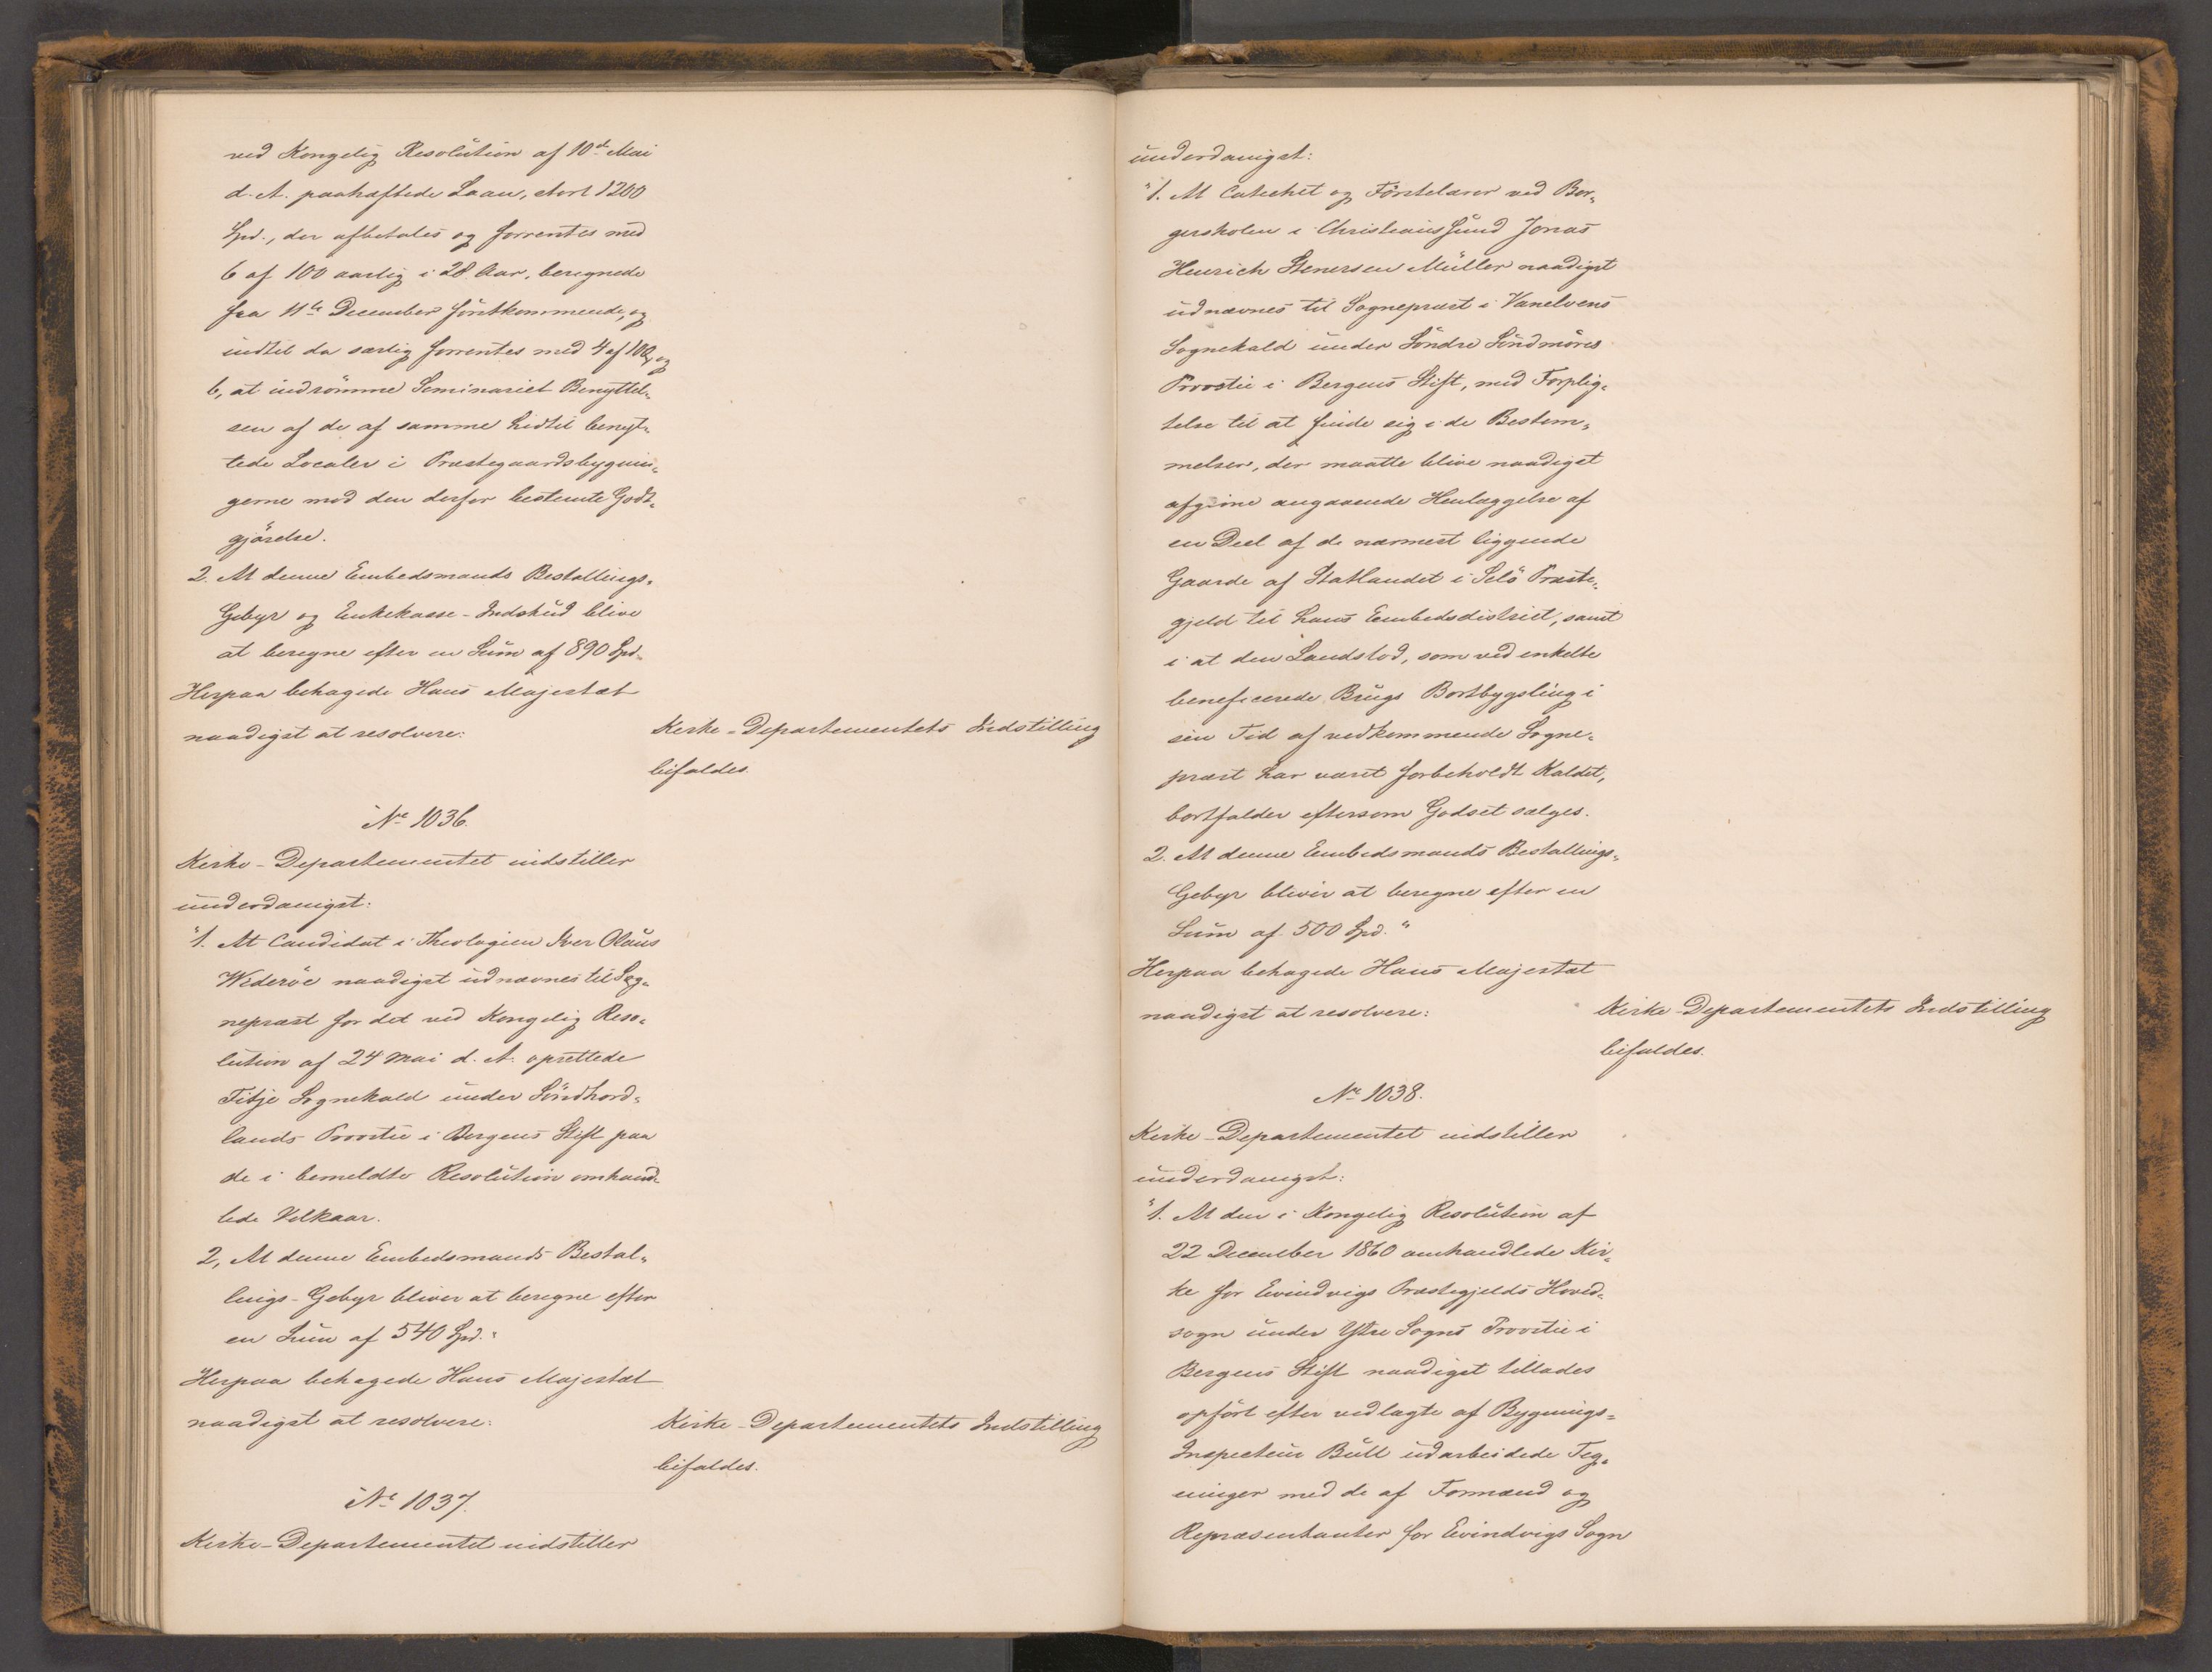 ved Kongelig Resolution af 10de Mai
d. A. paaheftede Laan, stort 1200
Spd., der afbetales og forrentes med
6 af 100 aarlig i 28 Aar, beregnede
fra 11te December förstkommende, og
indtil da særlig forrentes med 4 af 100, og
b, at indrömme Seminariet Benyttel„
sen af de af samme hidtil benyt„
tede Localer i Præstegaardsbygnin„
gerne mod den derfor bestemte Godt„
gjörelse.
2. At denne Embedsmands Bestallings„
Gebyr og Enkekasse-Indskud blive
at beregne efter en Sum af 890 Spd.
Herpaa behagede Hans Majestæt
naadigst at resolvere:
Kirke-Departementets Indstilling
bifaldes.
No 1036.
Kirke-Departementet indstiller
underdanigst:
"1. At Candidat i Theologien Iver Olaus
Wideröe naadigst udnævnes til Sog„
nepræst for det ved Kongelig Reso„
lution af 24 Mai d. A. oprettede
Fitje Sognekald under Söndhord„
lands Provstie i Bergens Stift paa
de i bemeldte Resolution omhand„
lede Vilkaar.
2, At denne Embedsmands Bestal„
lings-Gebyr bliver at beregne efter
en Sum af 540 Spd."
Herpaa behagede Hans Majestæt
naadigst at resolvere:
Kirke-Departementets Indstilling
bifaldes.
No 1037.
Kirke-Departementet indstiller
underdanigst:
"1. At Catechet og Förstelærer ved Bor„
gerskolen i Christianssund Jonas
Henrich Stenersen Müller naadigst
udnævnes til Sognepræst i Vanelvens
Sognekald under Söndre Söndmöres
Provstie i Bergens Stift, med Forplig„
telse til at finde sig i de Bestem„
melser, der maatte blive naadigst
afgivne angaaende Henlæggelse af
en Deel af de nærmest liggende
Gaarde af Statlandet i Selö Præste„
gjeld til hans Embedsdistrict, samt
i at den Landslod, som ved enkelte
beneficerede Brugs Bortbygsling i
sin Tid af vedkommende Sogne„
præst har været forbeholdt Kaldet,
bortfalder eftersom Godset sælges.
2. At denne Embedsmands Bestallings„
Gebyr bliver at beregne efter en
Sum af 500 Spd."
Herpaa behagede Hans Majestæt
naadigst at resolvere:
Kirke-Departementets Indstilling
bifaldes.
No 1038.
Kirke-Departementet indstiller
underdanigst:
"1. At den i Kongelig Resolution af
22 December 1860 omhandlede Kir„
ke for Evindvigs Præstegjelds Hoved„
sogn under Ytre Sogns Provstie i
Bergens Stift naadigst tillades
opfört efter vedlagte af Bygnings„
Inspecteur Bull udarbeidede Teg„
ninger med de af Formænd og
Repræsentanter for Evindvigs Sogn